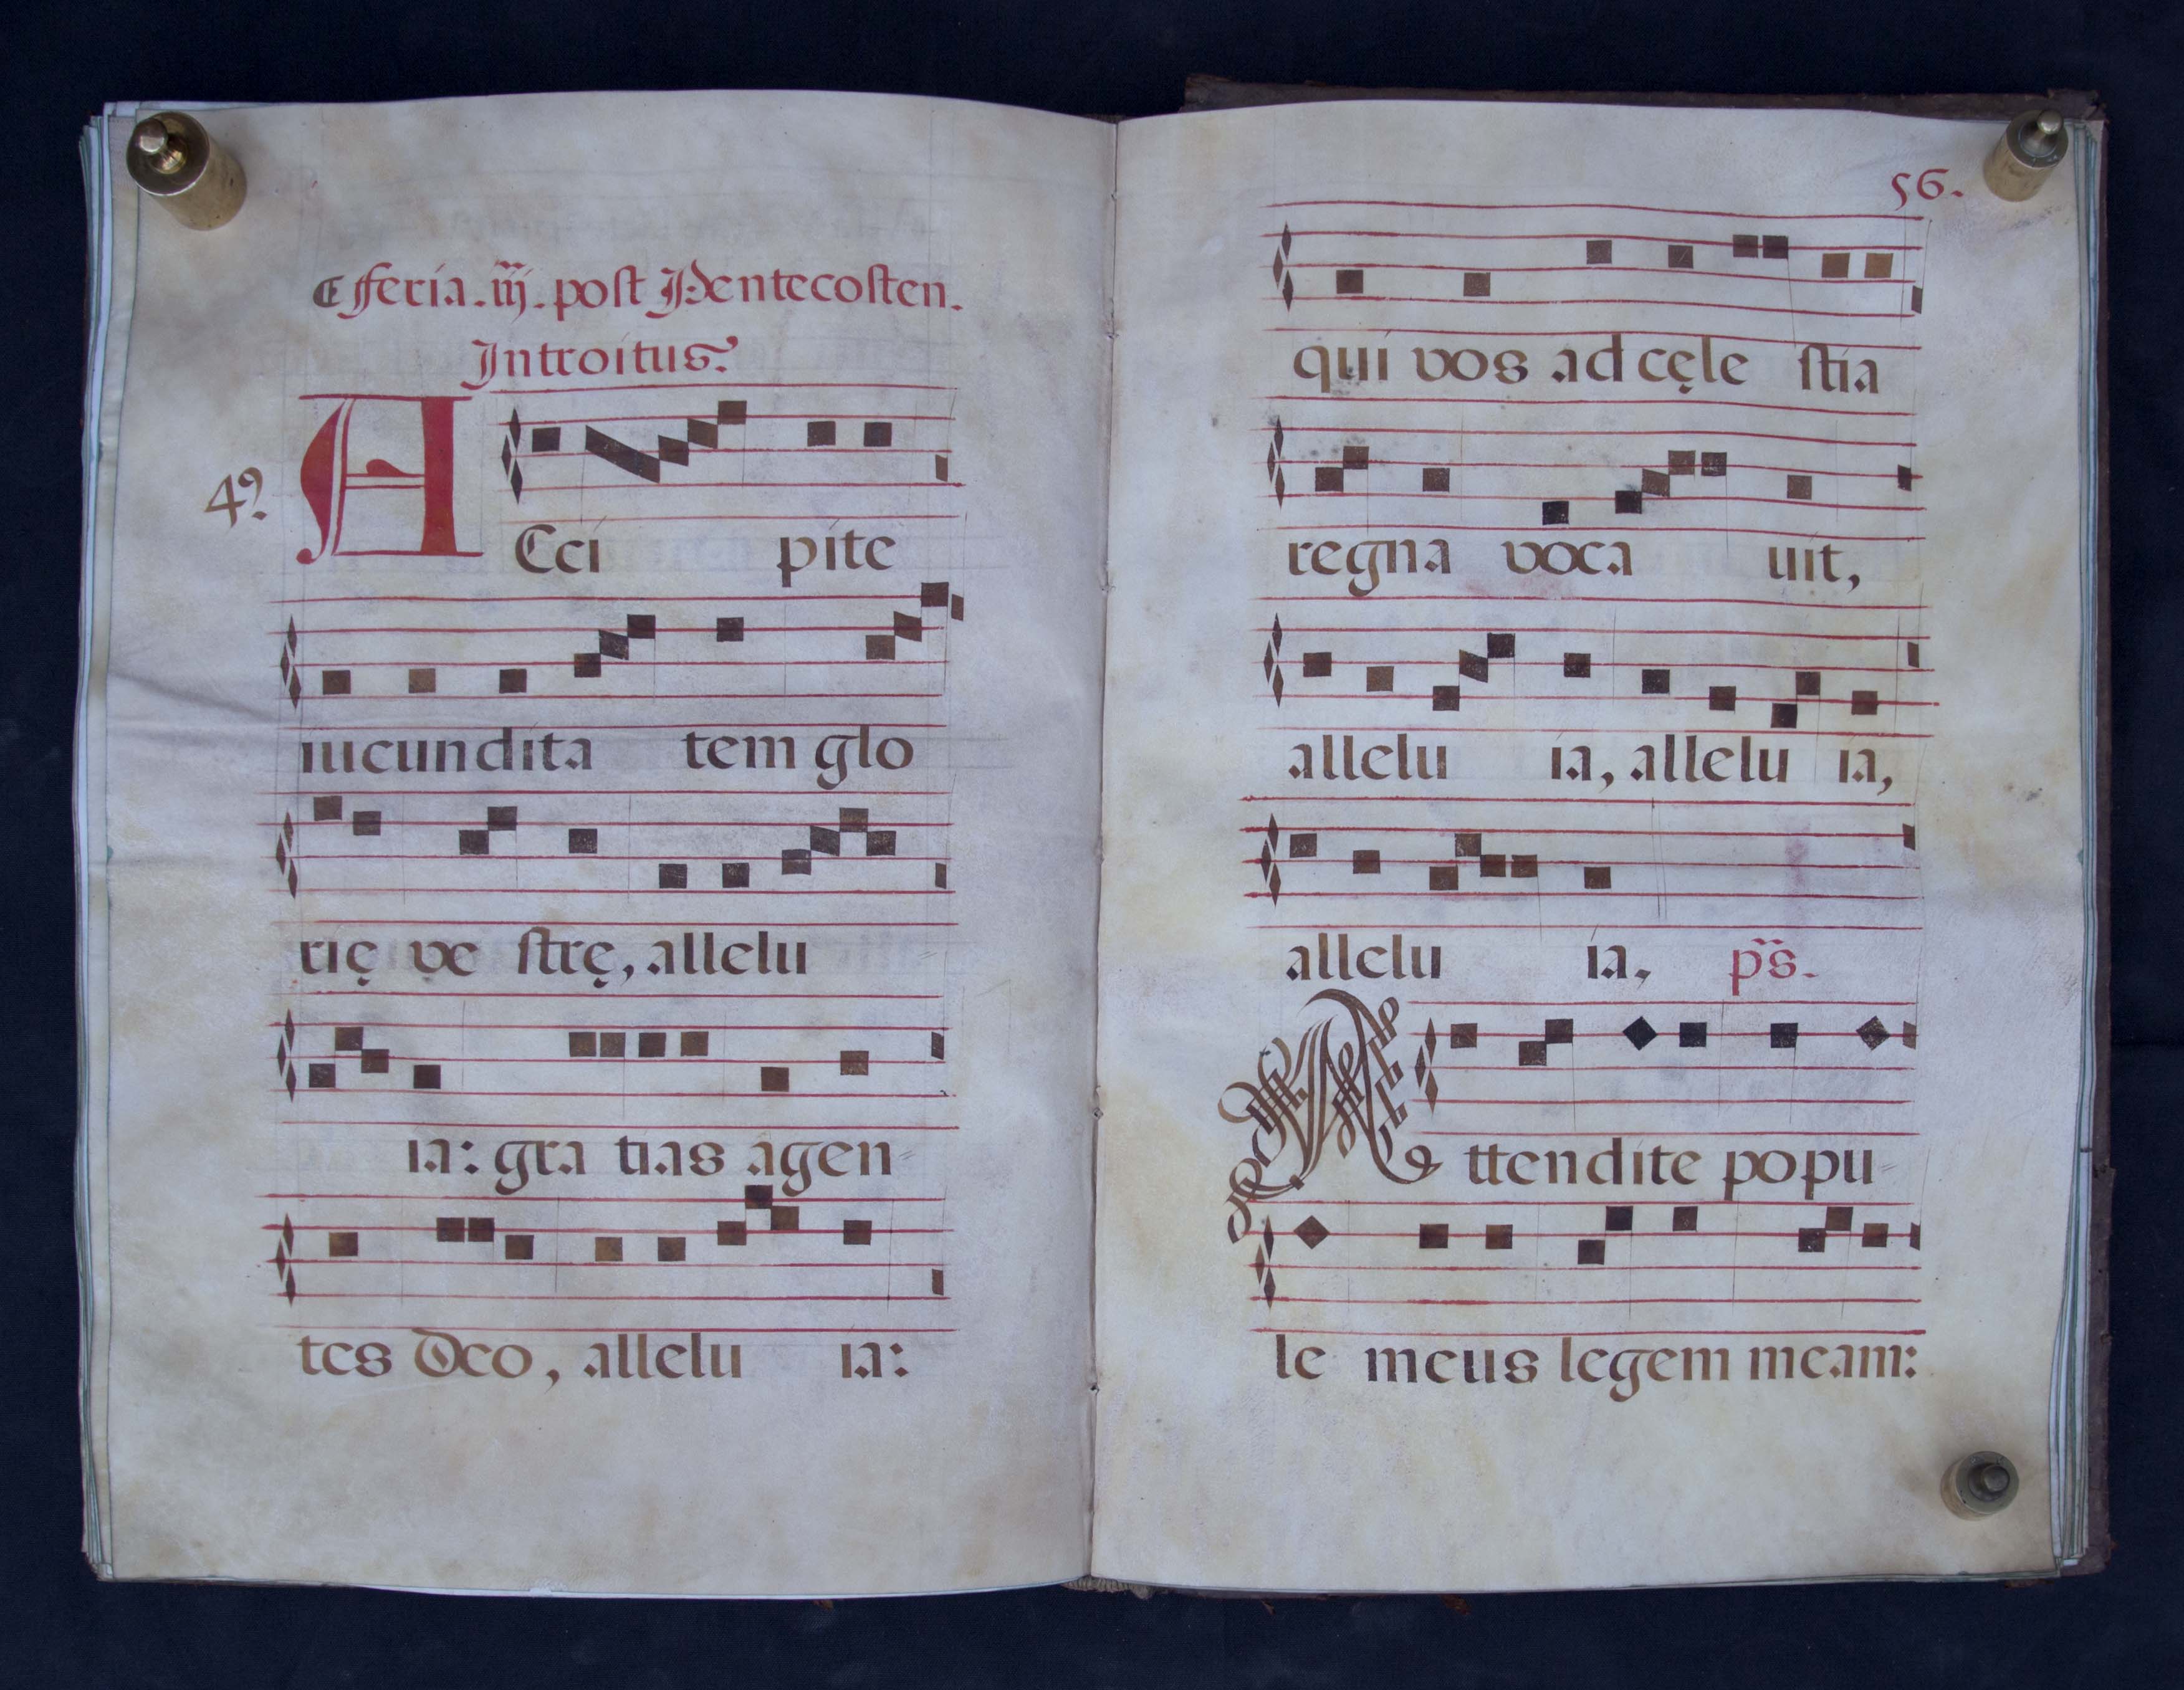 feria.iij.post Pentecosten.
Introitus.
4º.
ACci pite
iucundita tem glo
rię ve strę, allelu
ia: gra tias agen=
tes Deo, allelu ia:
56.
qui vos ad cęle stia
regna voca uit,
allelu ia, allelu ia,
allelu ia, ps.
Attendite popu=
le meus legem meam: